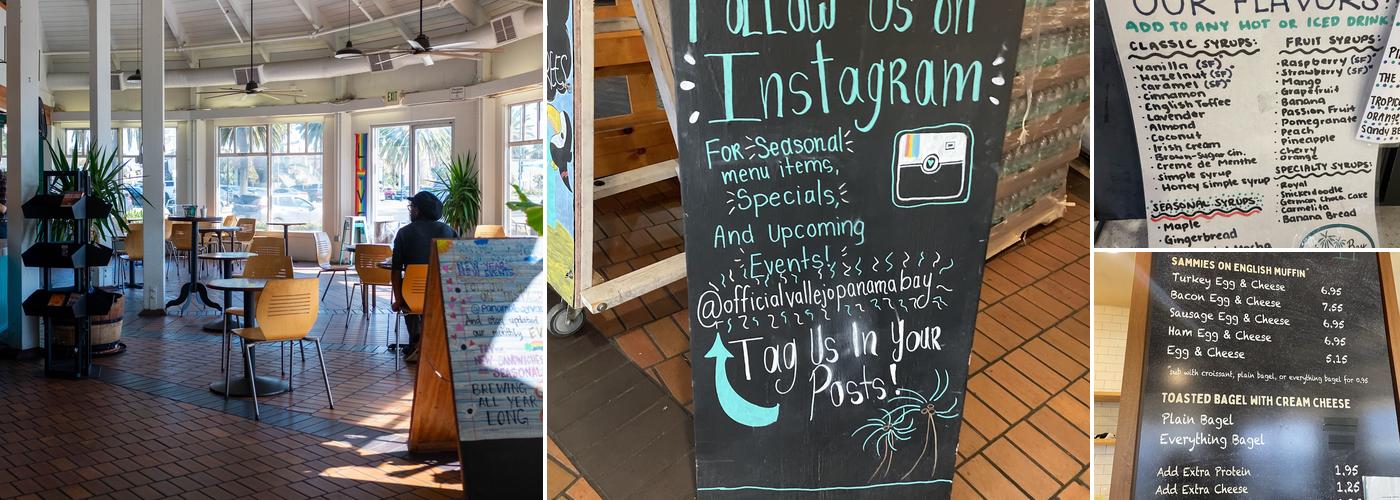 EXIT
NEW YEAR
And stay updated
our monthly
NEW SANDWICHES
SEASONAL
BREWING
ALL YEAR
LONG
Follow Us on
Instagram
For Seasonal
menu items,
Specials,
And Upcoming
Events!
@officialvallejopanamabay
Tag Us In Your
Posts!
OUR FLAVORS!
ADD TO ANY HOT OR ICED DRINK
CLASSIC SYRUPS:
Vanilla (SF)
Hazelnut (SF)
Caramel (SF)
Cinnamon
English Toffee
Lavender
Almond
Coconut
Irish Cream
Brown-Sugar Cin.
Creme de Menthe
Simple syrup
Honey simple syrup
SEASONAL SYRUPS:
Maple
Gingerbread
FRUIT SYRUPS:
Raspberry (SF)
Strawberry (SF)
Mango
Grapefruit
Banana
Passion Fruit
Pomegranate
Peach
Pineapple
Cherry
Orange
SPECIALTY SYRUPS:
Royal
Snickendoodle
German Choco. Cake
Carmelita
Banana Bread
Bay
THE
TROPIC
ORANGE
Sandy
SAMMIES ON ENGLISH MUFFIN*
Turkey Egg & Cheese 6.95
Bacon Egg & Cheese 7.55
Sausage Egg & Cheese 6.95
Ham Egg & Cheese 6.95
Egg & Cheese 5.15
*sub with croissant, plain bagel, or everything bagel for 0.95
TOASTED BAGEL WITH CREAM CHEESE
Plain Bagel
Everything Bagel
Add Extra Protein 1.95
Add Extra Cheese 1.25